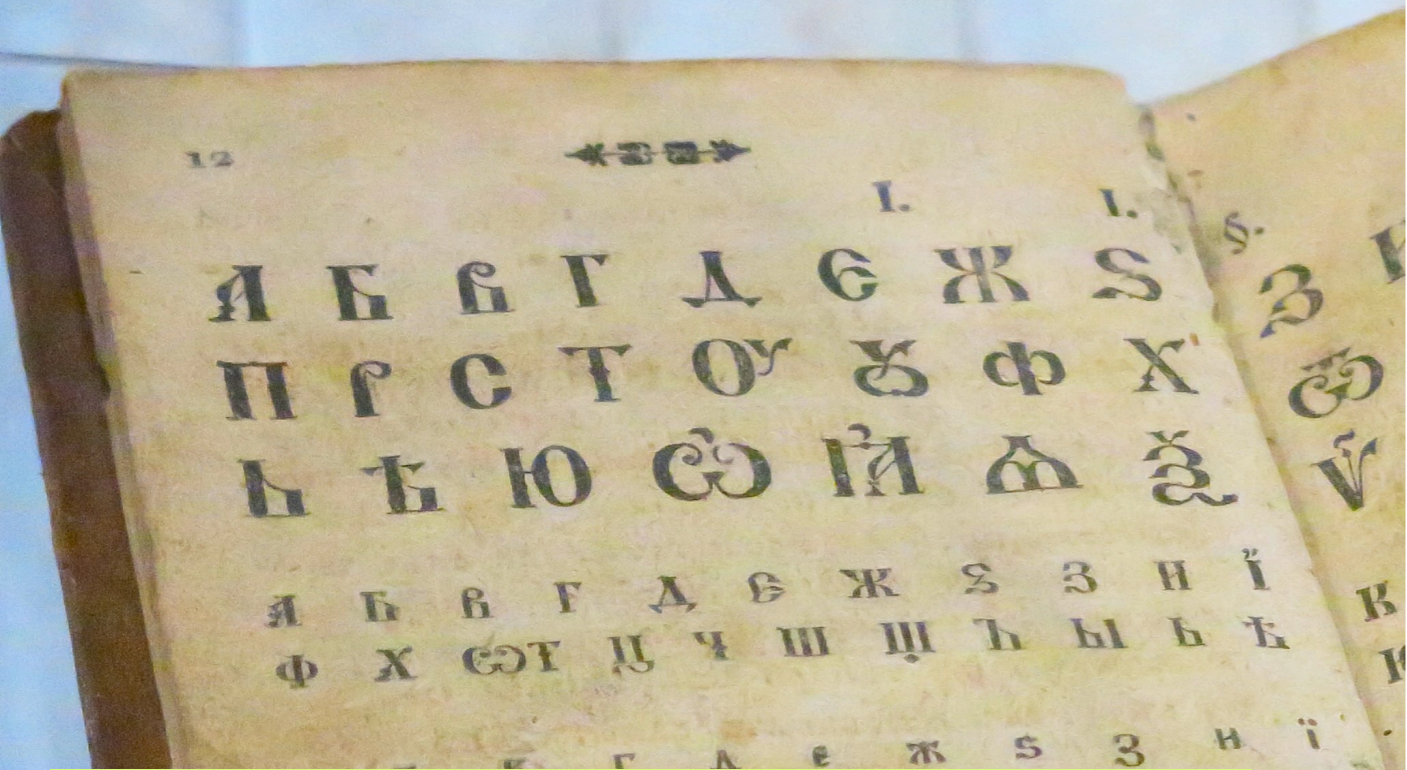 12
I. I.
А Б В Г Д Є Ж Ѕ
П Р С Т Оу Ꙋ Ф Х
Ь Ѣ Ю Ѽ Ꙗ Ѫ Ѯ
А Б В Г Д Є Ж Ѕ З И Ї
Ф Х ѾТ Ц Ч Ш Щ Ъ Ы Ь Ѣ
Г Д Є Ж Ѕ З И Ї
§.
З
Ѿ
Ѷ
К